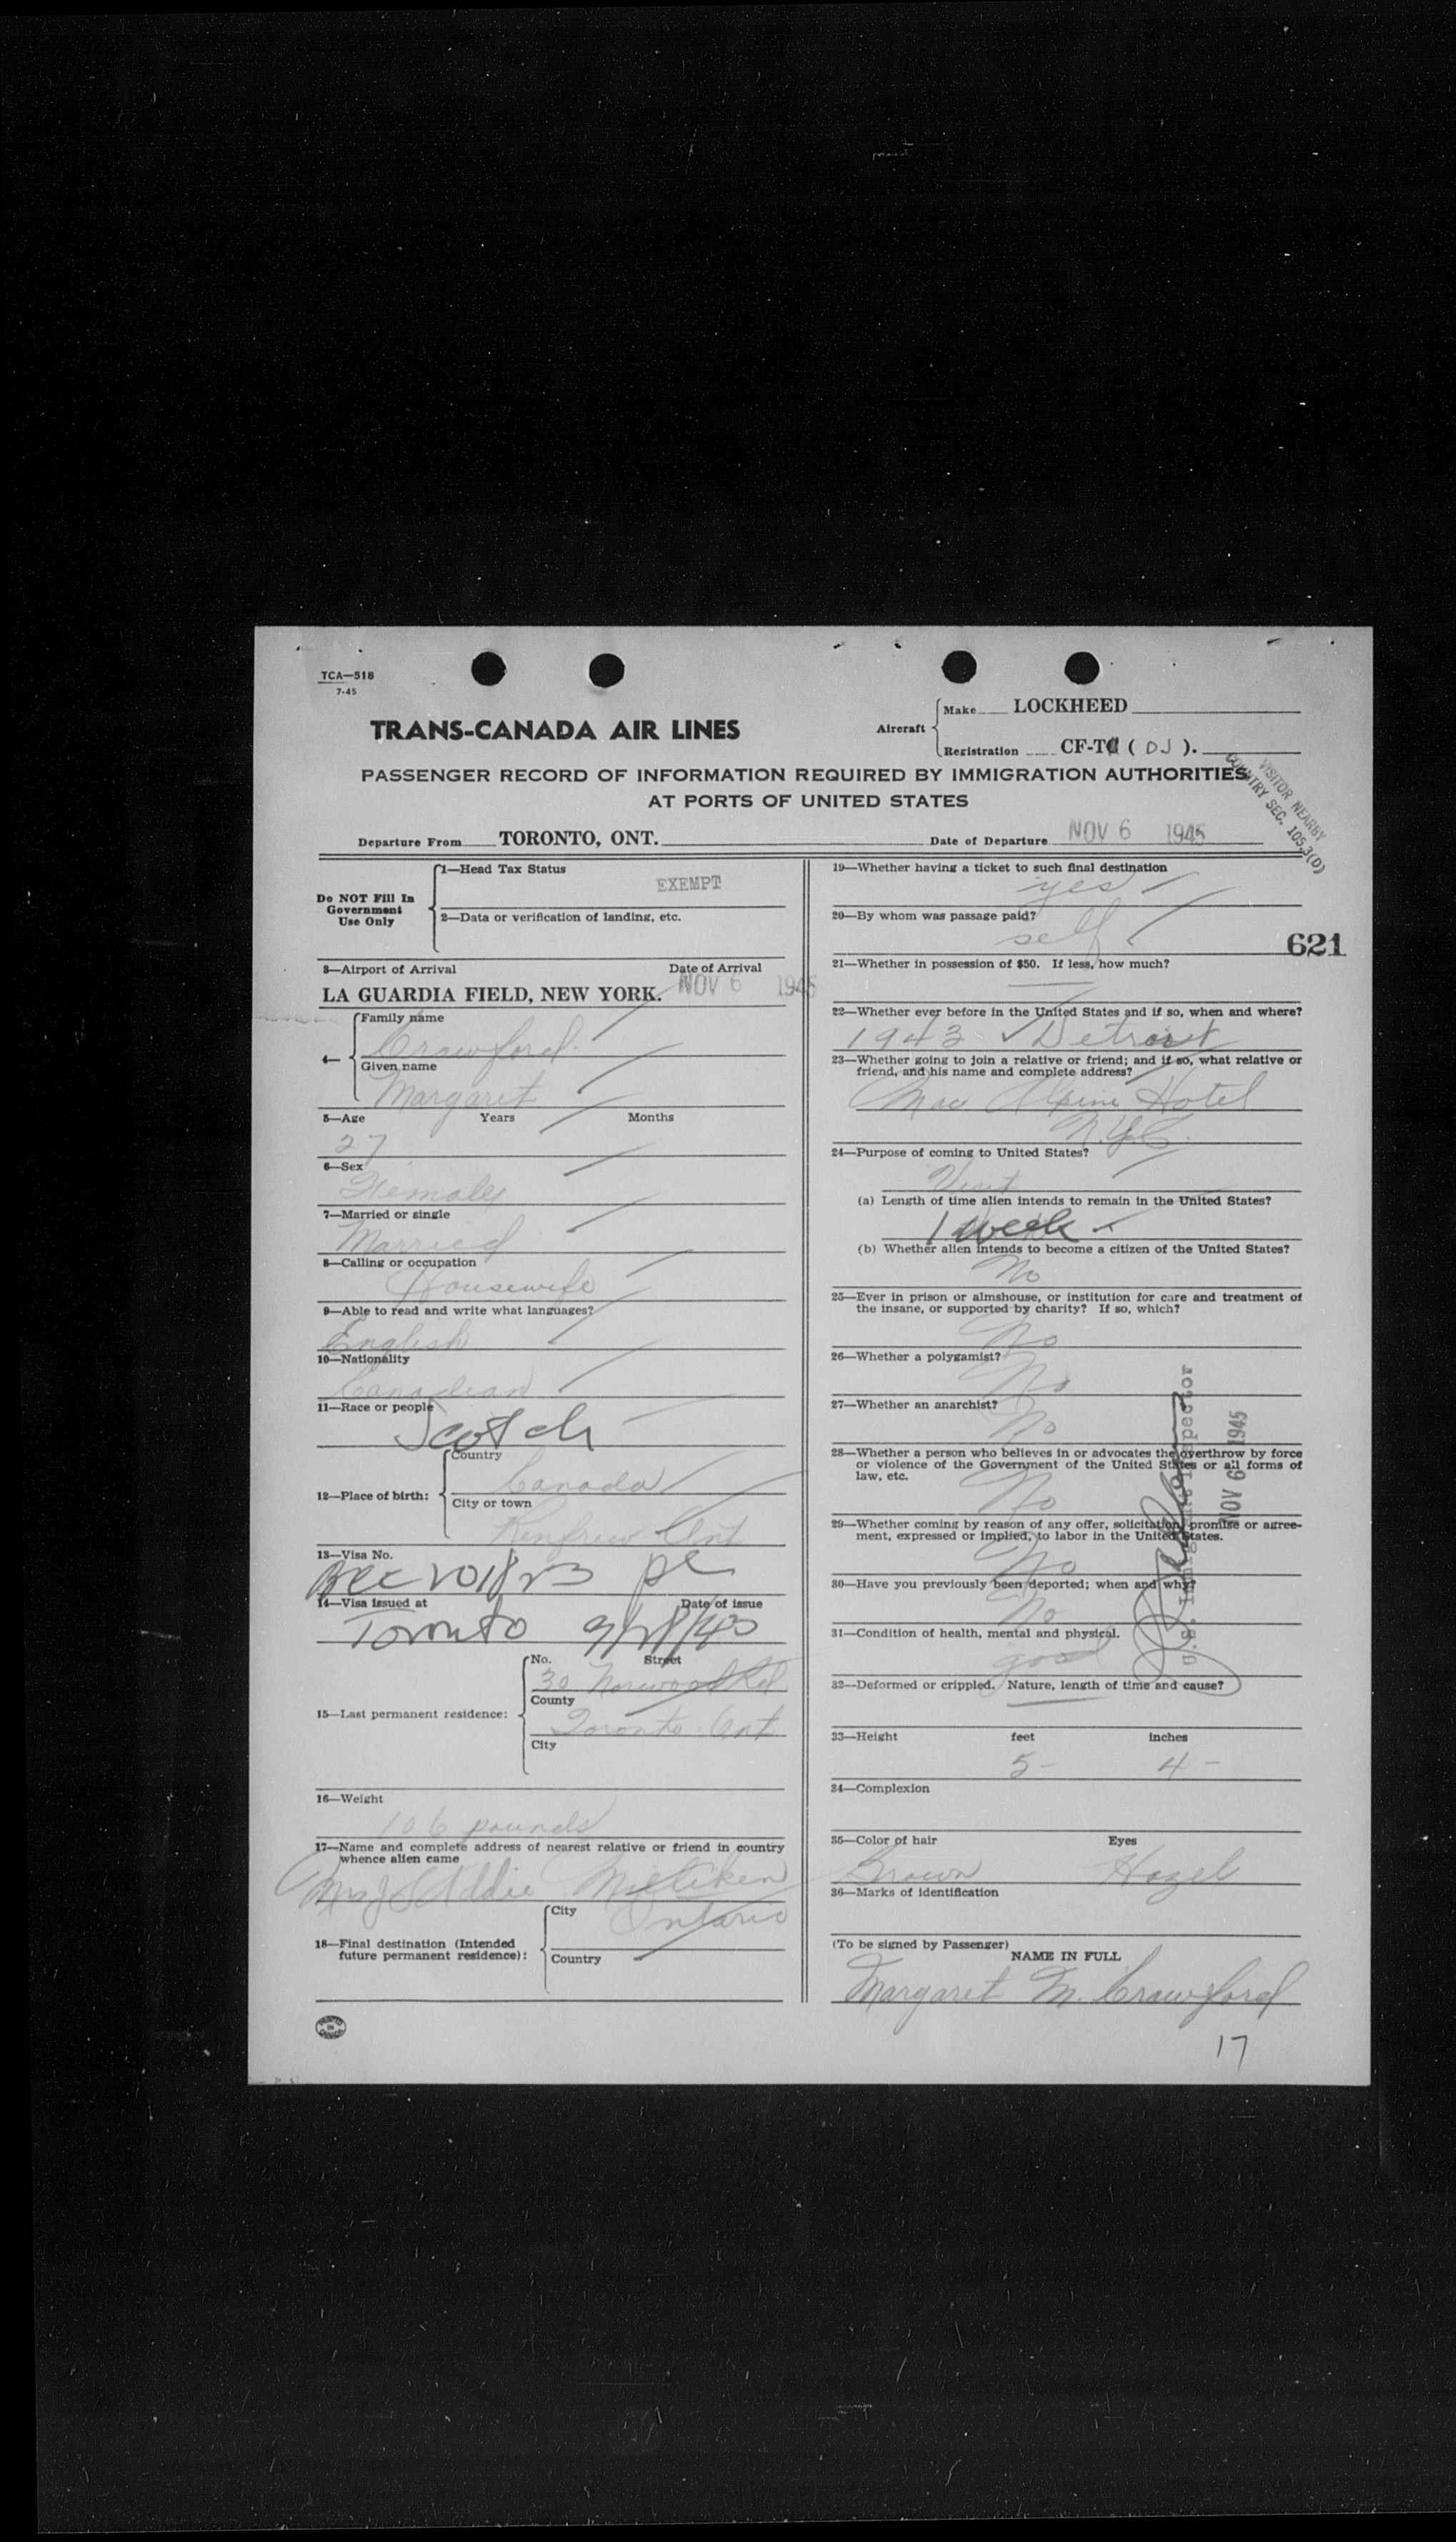 TCA—518
7-45
TRANS-CANADA AIR LINES
Aircraft
Make LOCKHEED
Registration CF-TC ( DJ ).
PASSENGER RECORD OF INFORMATION REQUIRED BY IMMIGRATION AUTHORITIES
AT PORTS OF UNITED STATES
VISITOR NEARBY
COUNTRY SEC. 105.3(D)
Departure From TORONTO, ONT.
Date of Departure NOV 6 1945
Do NOT Fill In
Government
Use Only
1—Head Tax Status
EXEMPT
2—Data or verification of landing, etc.
3—Airport of Arrival Date of Arrival
LA GUARDIA FIELD, NEW YORK. NOV 6 1945
4—
Family name
Crawford
Given name
Margaret
5—Age Years Months
27
6—Sex
Female
7—Married or single
Married
8—Calling or occupation
Housewife
9—Able to read and write what languages?
English
10—Nationality
Canadian
11—Race or people
Scotch
12—Place of birth:
Country
Canada
City or town
Renfrew Ont
13—Visa No.
14—Visa issued at Date of issue
Toronto
15—Last permanent residence:
No. Street
30 Norwood Rd
County
Toronto Ont
City
16—Weight
106 pounds
17—Name and complete address of nearest relative or friend in country
whence alien came
Mrs J Addie Milliken
Ontario
18—Final destination (Intended
future permanent residence):
City
Country
19—Whether having a ticket to such final destination
yes
20—By whom was passage paid?
self
621
21—Whether in possession of $50. If less, how much?
22—Whether ever before in the United States and if so, when and where?
1943 Detroit
23—Whether going to join a relative or friend; and if so, what relative or
friend, and his name and complete address?
Mac Alpine Hotel
N.Y.C.
24—Purpose of coming to United States?
Visit
(a) Length of time alien intends to remain in the United States?
1 week
(b) Whether alien intends to become a citizen of the United States?
No
25—Ever in prison or almshouse, or institution for care and treatment of
the insane, or supported by charity? If so, which?
No
26—Whether a polygamist?
No
27—Whether an anarchist?
No
28—Whether a person who believes in or advocates the overthrow by force
or violence of the Government of the United States or all forms of
law, etc.
No
29—Whether coming by reason of any offer, solicitation, promise or agree-
ment, expressed or implied, to labor in the United States.
No
30—Have you previously been deported; when and why?
No
31—Condition of health, mental and physical.
good
32—Deformed or crippled. Nature, length of time and cause?
U.S. Immigrant Inspector
NOV 6 1945
33—Height feet inches
5- 4-
34—Complexion
35—Color of hair Eyes
Brown Hazel
36—Marks of identification
(To be signed by Passenger)
NAME IN FULL
Margaret M. Crawford
17